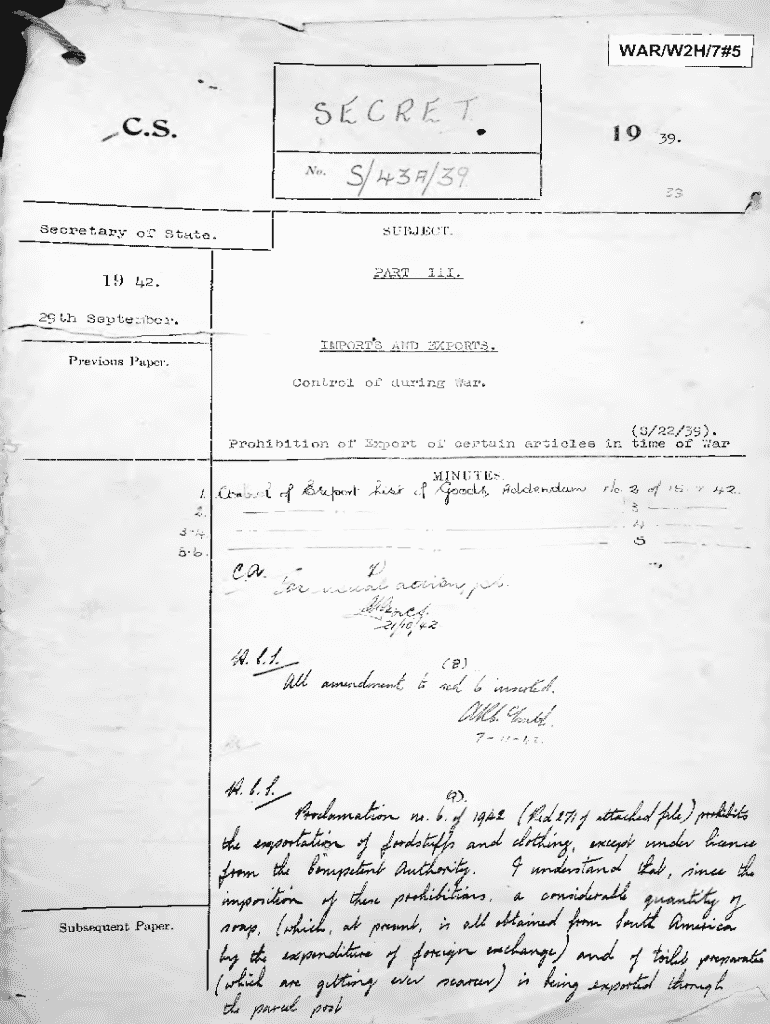 WAR/W2H/7#5
SECRET.
C.S.
19 39.
No. S/43A/39
33
Secretary of State.
SUBJECT.
19 42.
PART III.
29th September.
IMPORTS AND EXPORTS.
Previous Paper.
Control of during War.
(S/22/39).
Prohibition of Export of certain articles in time of War
MINUTES.
1. Control of Export List of Goods, Addendum No. 2 of 15 42.
2. 3
3-4. 4
5-6. 5
C.A.
For usual action, pl.
21/10/42
H.C.S. (8)
All amendments to red 6 inserted.
7-11-42.
H.C.S. (9).
Proclamation no. 6. of 1942 (Red 271 of attached file) prohibits
the exportation of foodstuffs and clothing, except under licence
from the Competent Authority. I understand that, since the
imposition of these prohibitions, a considerable quantity of
soap, (which, at present, is all obtained from South America
Subsequent Paper.
by the expenditure of foreign exchange) and of toilet preparatio
(which are getting ever scarcer) is being exported through
the parcel post